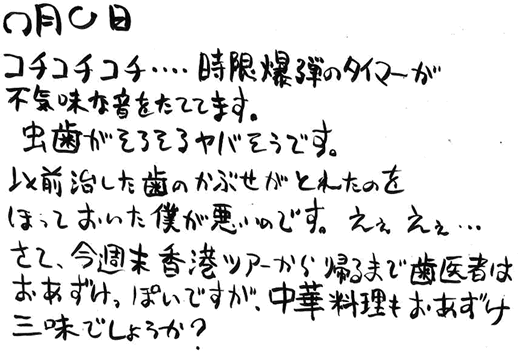 〇月〇日
コチコチコチ････時限爆弾のタイマーが
不気味な音をたててます。
虫歯がそろそろヤバそうです。
以前治した歯のかぶせがとれたのを
ほっておいた僕が悪いのです。ええ ええ…
さて、今週末香港ツアーから帰るまで歯医者は
おあずけっぽいですが、中華料理もおあずけ
三味でしょうか？